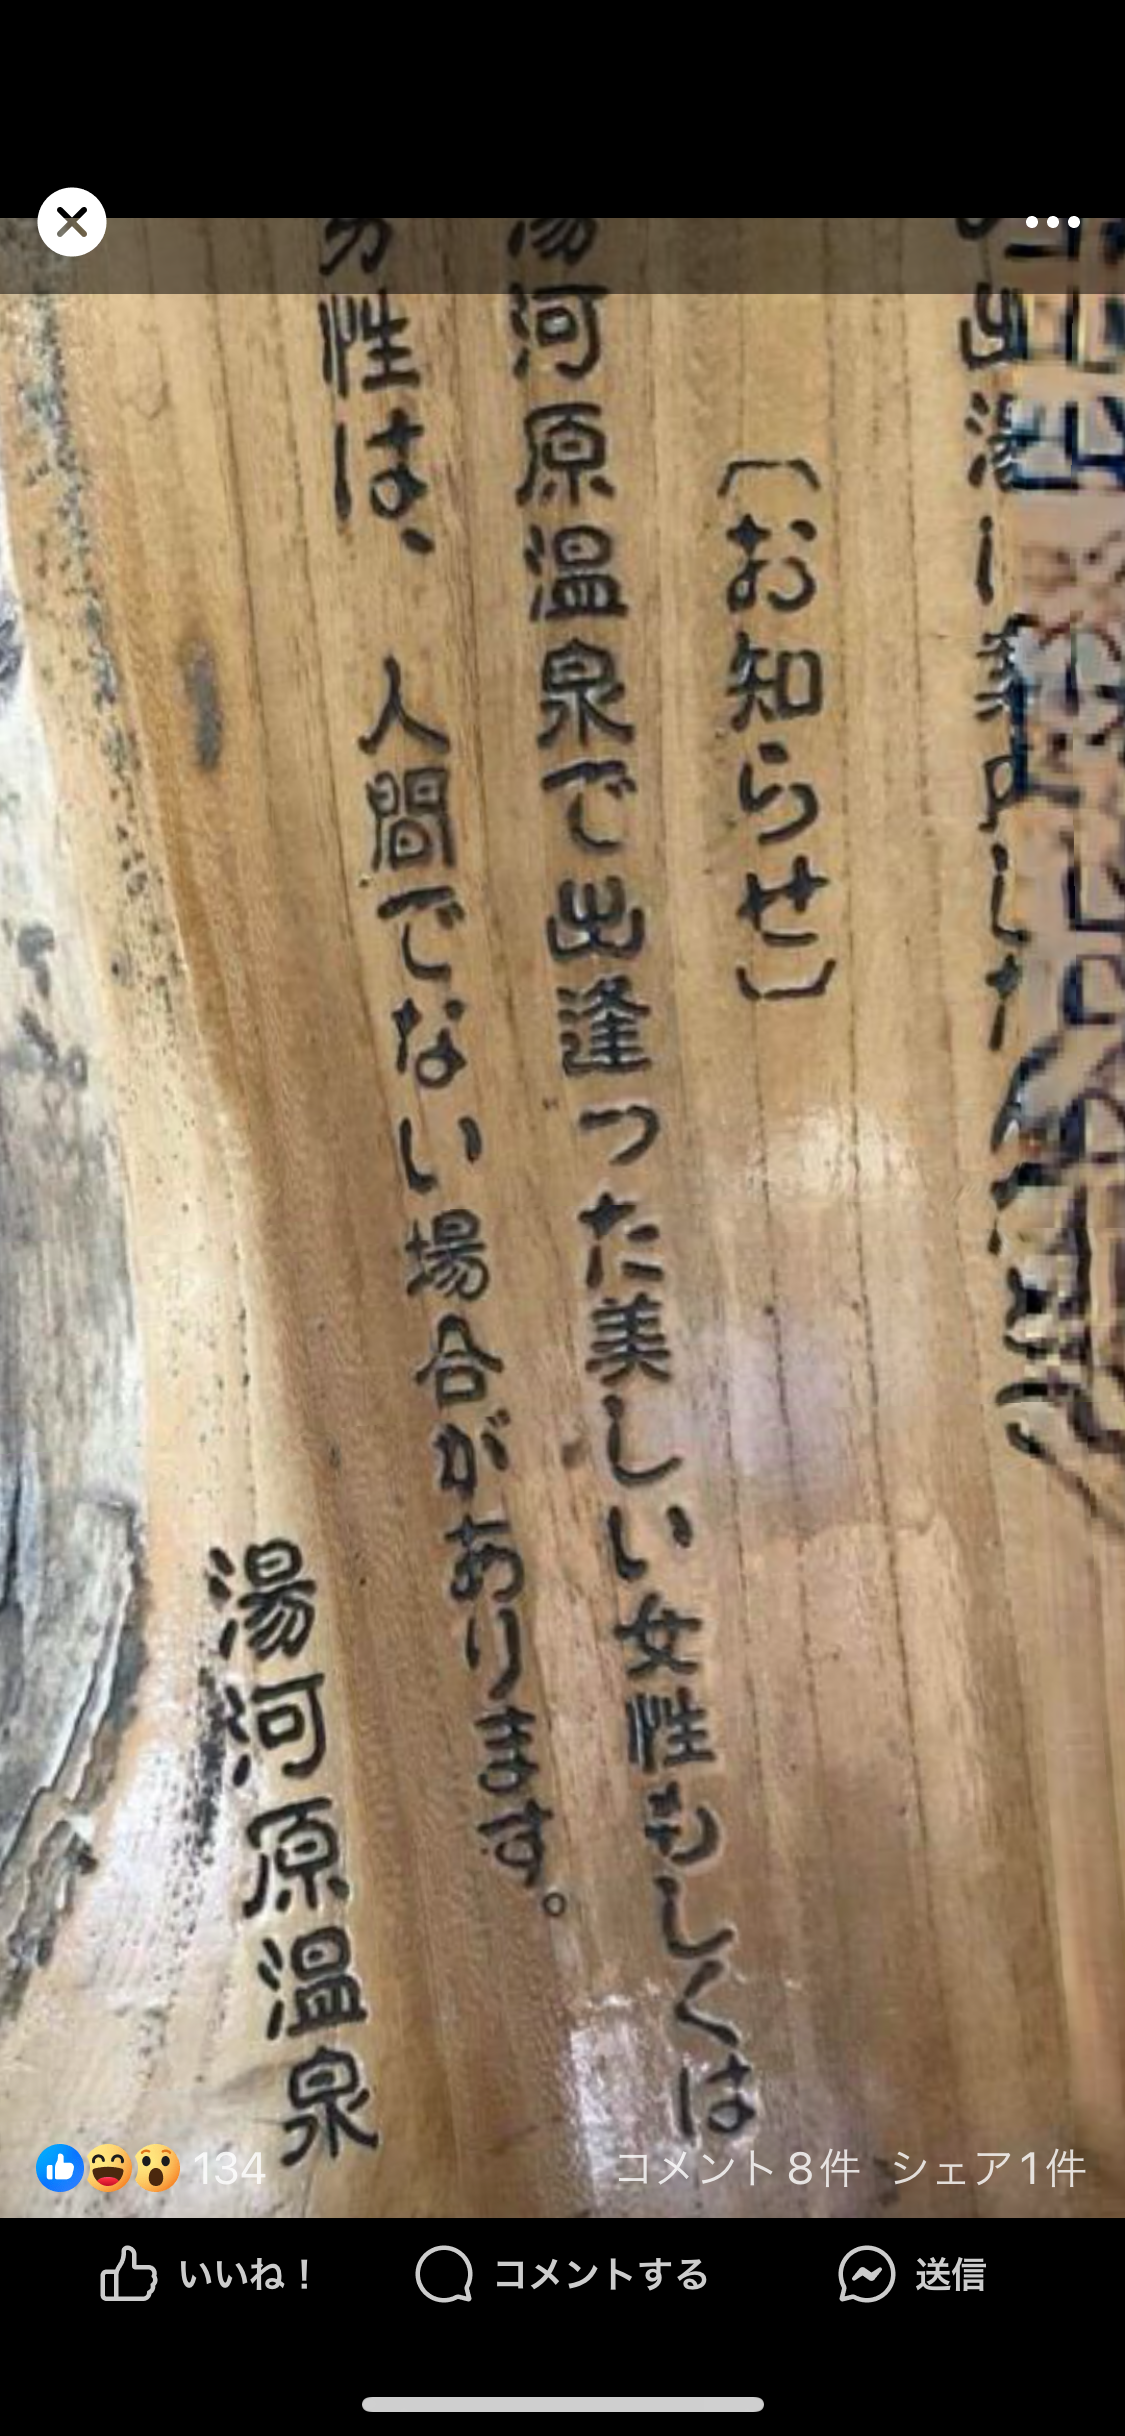 〔お知らせ〕
湯河原温泉で出逢つた美しい女性もしくは
男性は、人間でない場合があります。
湯河原温泉
134
コメント8件 シェア1件
いいね！
コメントする
送信